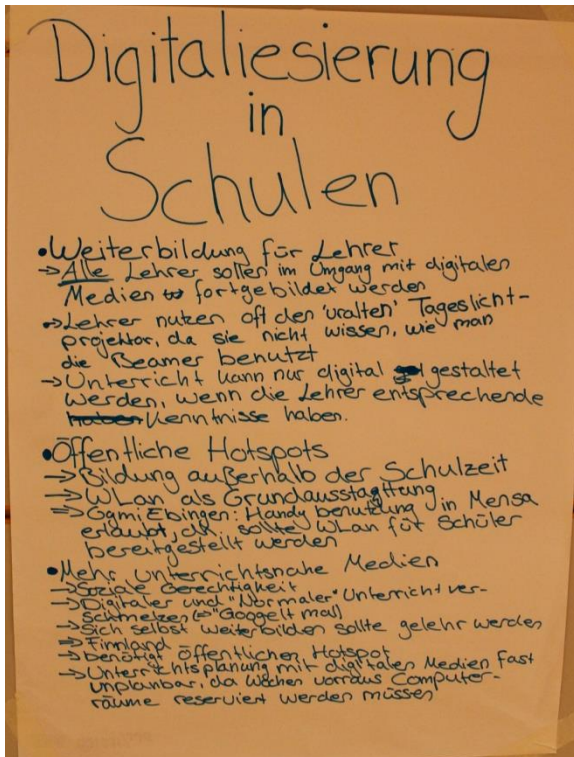 Digitaliesierung
in
Schulen
•Weiterbildung für Lehrer
→Alle Lehrer sollen im Umgang mit digitalen
Medien fortgebildet werden
→Lehrer nutzen oft den 'uralten' Tageslicht-
projektor, da sie nicht wissen, wie man
die Beamer benutzt
→Unterricht kann nur digital gestaltet
werden, wenn die Lehrer entsprechende
haben Kenntnisse haben.
•Öffentliche Hotspots
→Bildung außerhalb der Schulzeit
→WLan als Grundausstattung
→Ebingen: Handy benutzung in Mensa
erlaubt, da sollte WLan für Schüler
bereitgestellt werden
•Mehr unterrichtsnahe Medien
→Soziale Gerechtigkeit
→Digitaler und "Normaler" Unterricht ver-
schmelzen (→"Googelt mal)
→Sich selbst weiterbilden sollte gelehr werden
→Finnland
→benötigt öffentlichen Hotspot
→Unterrichtsplanung mit digitalen Medien fast
unplanbar, da Wochen vorraus Computer-
räume reserviert werden müssen